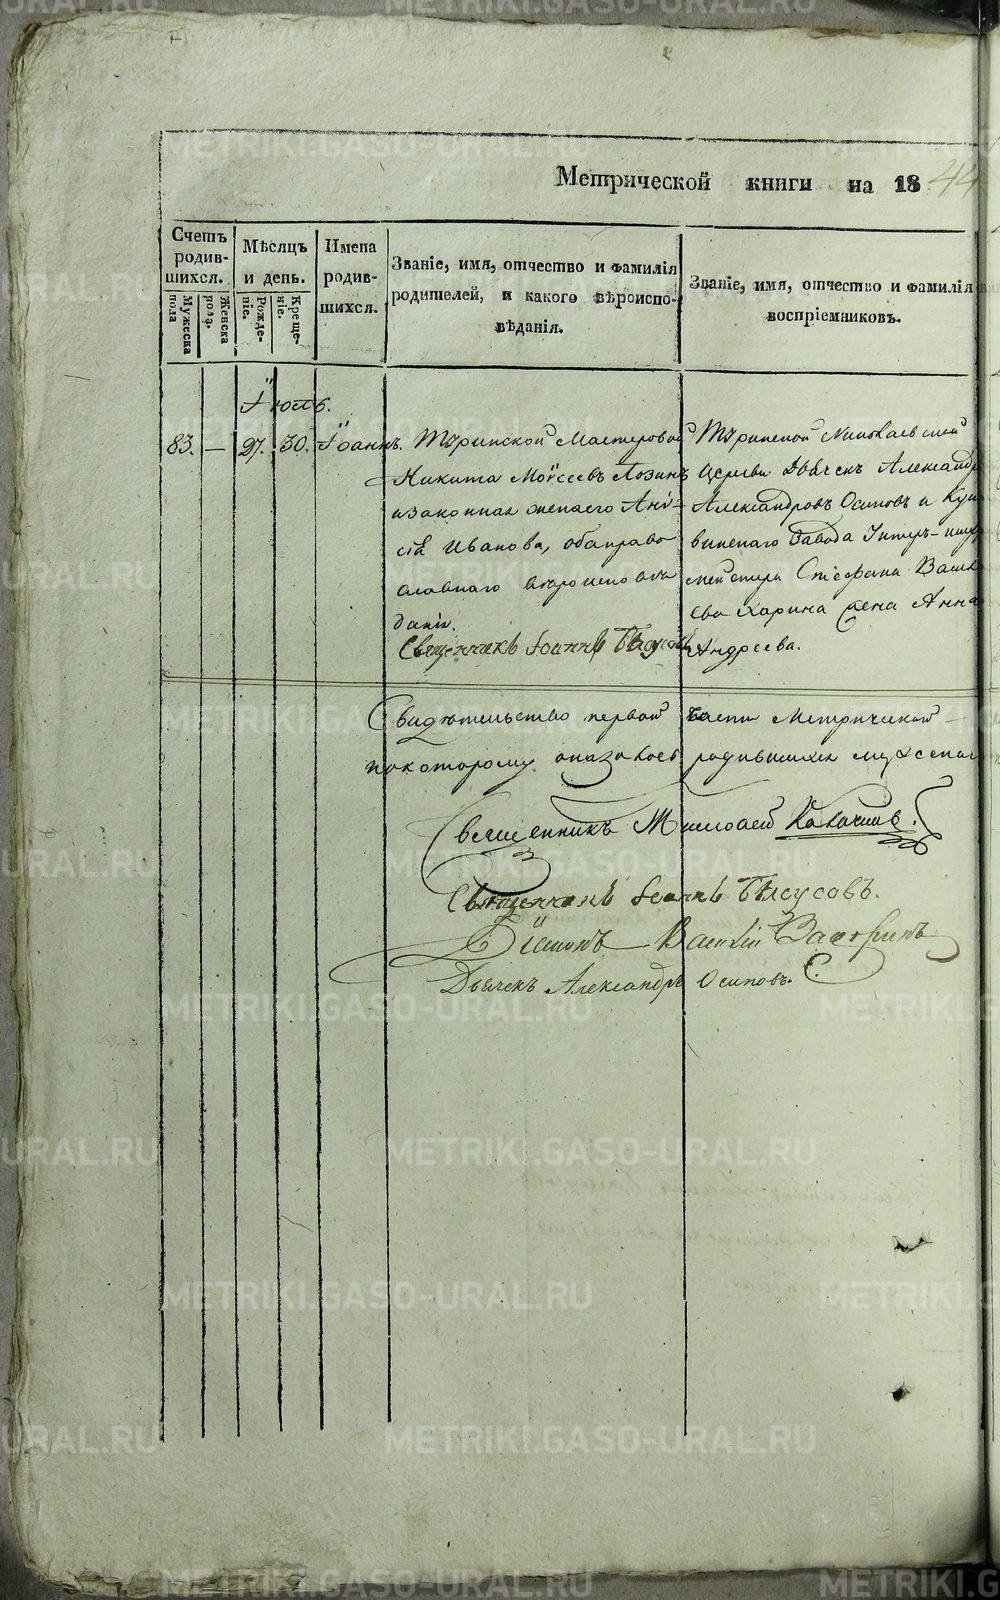 Метрической книги на 1844
Счетъ родив-шихся.
Мужеска пола
Женска пола.
Мѣсяцъ и день.
Рожде-ніе.
Креще-ніе.
Имена родив-шихся.
Званіе, имя, отчество и фамилія родителей, и какого вѣроиспо-вѣданія.
Званіе, имя, отчество и фамилія воспріемниковъ.
Іюль.
83. — 27. 30. Іоаннъ.
Туринской Мастеровой
Никита Моѵсеевъ Лозинъ
и законная жена его Ани-
сія Иванова, оба право
славнаго вѣроисповѣ
данія.
Священникъ Іоаннъ
Туринской Николаевской
Церкви Дьячекъ Александръ
Александровъ Осиповъ и Куш
винскаго Завода
Стефана Василь
ева Харина жена Анна
Андреева.
Свидѣтельство первой части Метрической
по которому оказалось родившихся мужеска
Священникъ Тимоѳей
Священникъ Іоаннъ
Діаконъ Василій
Дьячекъ Александръ Осиповъ.
METRIKI.GASO-URAL.RU